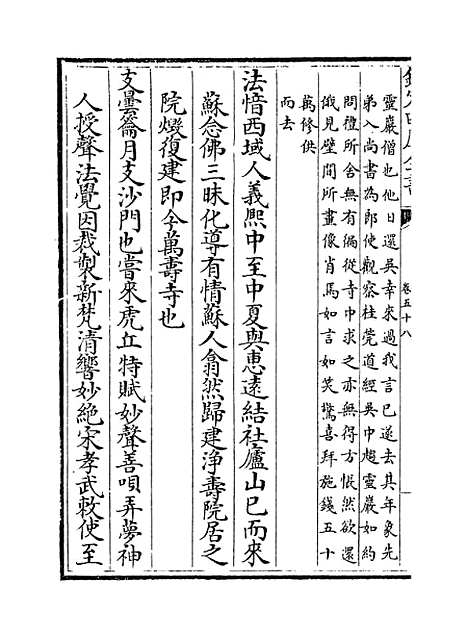 欽定四庫全書
卷五十八
靈巖僧也他日還吳幸來過我言已遂去其年象先
弟入尚書為郎使觀察桂筦道經吳中趨靈巖如約
問禮所舍無有徧從寺中求之亦無得方悵然欲還
俄見壁間所畫像肖焉如言如笑驚喜拜施錢五十
萬修供
而去
法愔西域人義熙中至中夏與惠遠結社廬山已而來
蘇念佛三昧化導有情蘇人翕然歸建淨壽院居之
院燬復建即今萬壽寺也
支曇籥月支沙門也嘗來虎丘特賦妙聲善唄弄夢神
人授聲法覺因裁製新梵清響妙絕宋孝武敕使至